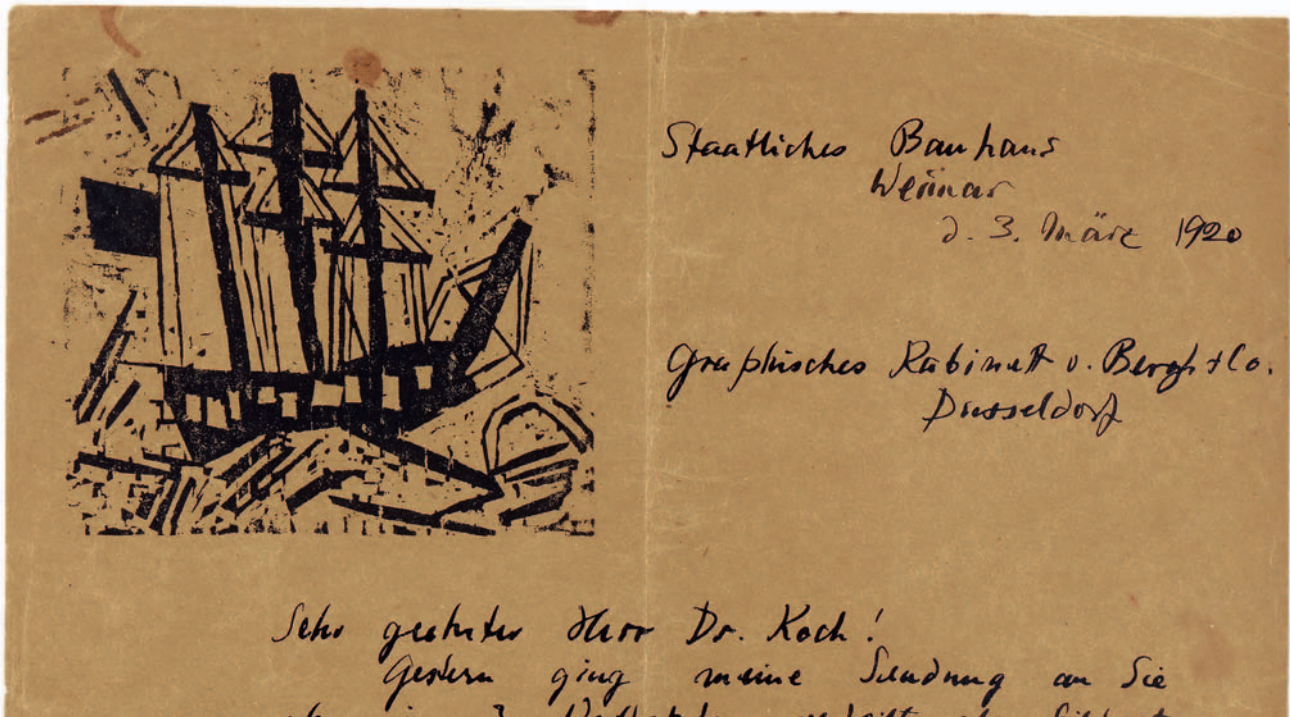 Staatliches Bauhaus
Weimar
d. 3. März 1920
Graphisches Kabinett v. Bergh + Co.
Düsseldorf
Sehr geehrter Herr Dr. Koch!
Gestern ging meine Sendung an Sie